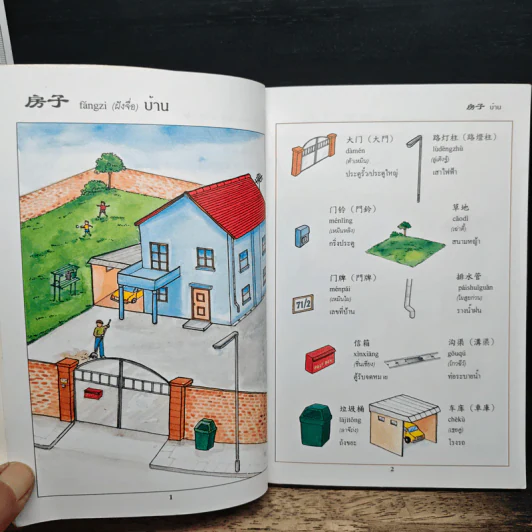 房子 fángzi (ฝังจื่อ) บ้าน
1
房子 บ้าน
大门 (大門)
dàmén
(ต้าเหมิน)
ประตูรั้ว/ประตูใหญ่
路灯柱 (路燈柱)
lùdēngzhù
เสาไฟฟ้า
门铃 (門鈴)
ménlíng
(เหมินหลิง)
กริ่งประตู
草地
cǎodì
(เฉ่าตี้)
สนามหญ้า
门牌 (門牌)
ménpái
(เหมินไผ)
เลขที่บ้าน
71/2
排水管
páishuǐguǎn
รางน้ำฝน
信箱
xìnxiāng
(ซิ่นเซียง)
ตู้รับจดหมาย
POST BOX
沟渠 (溝渠)
gōuqú
ท่อระบายน้ำ
垃圾桶
lājītǒng
(ลาจีถ่ง)
ถังขยะ
车库 (車庫)
chēkù
(เชอคู่)
โรงรถ
2